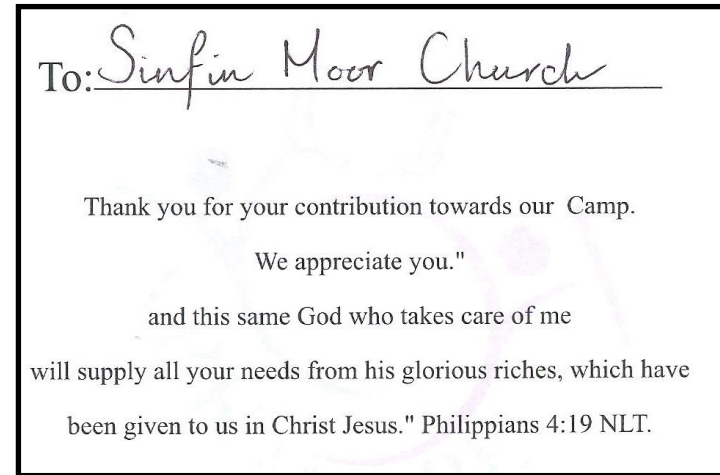 To: Sinfin Moor Church
Thank you for your contribution towards our Camp.
We appreciate you."
and this same God who takes care of me
will supply all your needs from his glorious riches, which have
been given to us in Christ Jesus." Philippians 4:19 NLT.